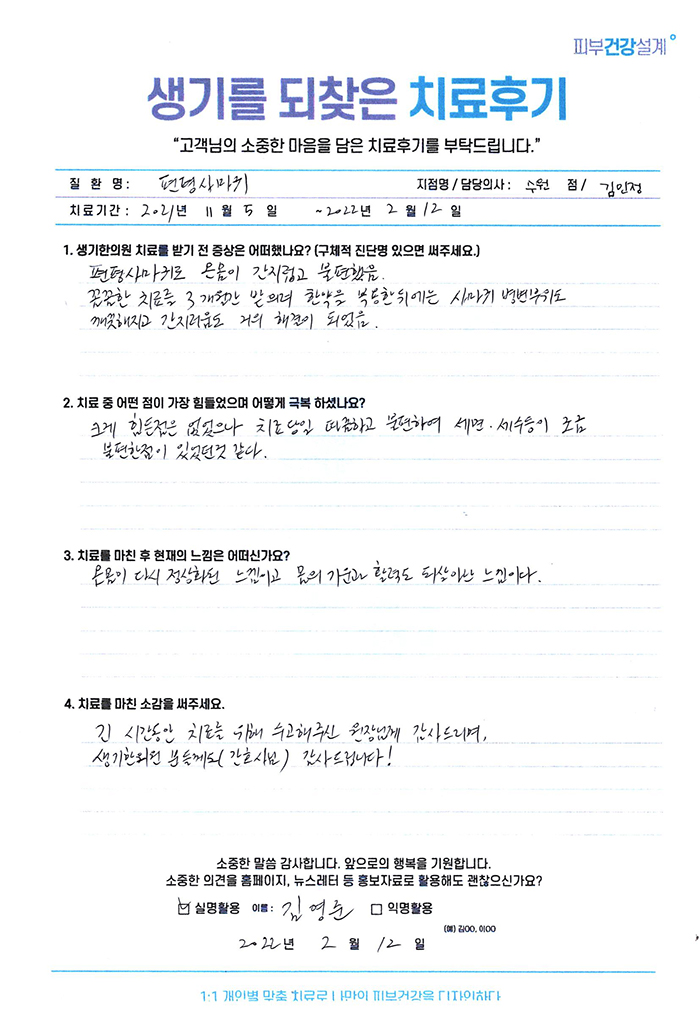 피부건강설계
생기를 되찾은 치료후기
“고객님의 소중한 마음을 담은 치료후기를 부탁드립니다.”
질 환 명 : 편평사마귀 지점명 / 담당의사 : 수원 점 / 김인정
치료기간 : 2021년 11월 5일 ~2022년 2월 12일
1. 생기한의원 치료를 받기 전 증상은 어떠했나요? (구체적 진단명 있으면 써주세요.)
편평사마귀로 온몸이 간지럽고 불편했음.
꼼꼼한 치료를 3개월간 받으며 한약을 복용한 뒤에는 사마귀 병변부위도
깨끗해지고 간지러움도 거의 해결이 되었음.
2. 치료 중 어떤 점이 가장 힘들었으며 어떻게 극복 하셨나요?
크게 힘든점은 없었으나 치료당일 따끔하고 불편하여 세면·세수등이 조금
불편한점이 있었던것 같다.
3. 치료를 마친 후 현재의 느낌은 어떠신가요?
온몸이 다시 정상화된 느낌이고 몸의 기운과 활력도 되살아난 느낌이다.
4. 치료를 마친 소감을 써주세요.
긴 시간동안 치료를 위해 수고해주신 원장님께 감사드리며,
생기한의원 분들께도 (간호사님) 감사드립니다!
소중한 말씀 감사합니다. 앞으로의 행복을 기원합니다.
소중한 의견을 홈페이지, 뉴스레터 등 홍보자료로 활용해도 괜찮으신가요?
☑ 실명활용 이름 : 김영준 ☐ 익명활용
(예) 김OO, 이OO
2022년 2월 12일
1:1 개인별 맞춤 치료로 나만의 피부건강을 디자인하다